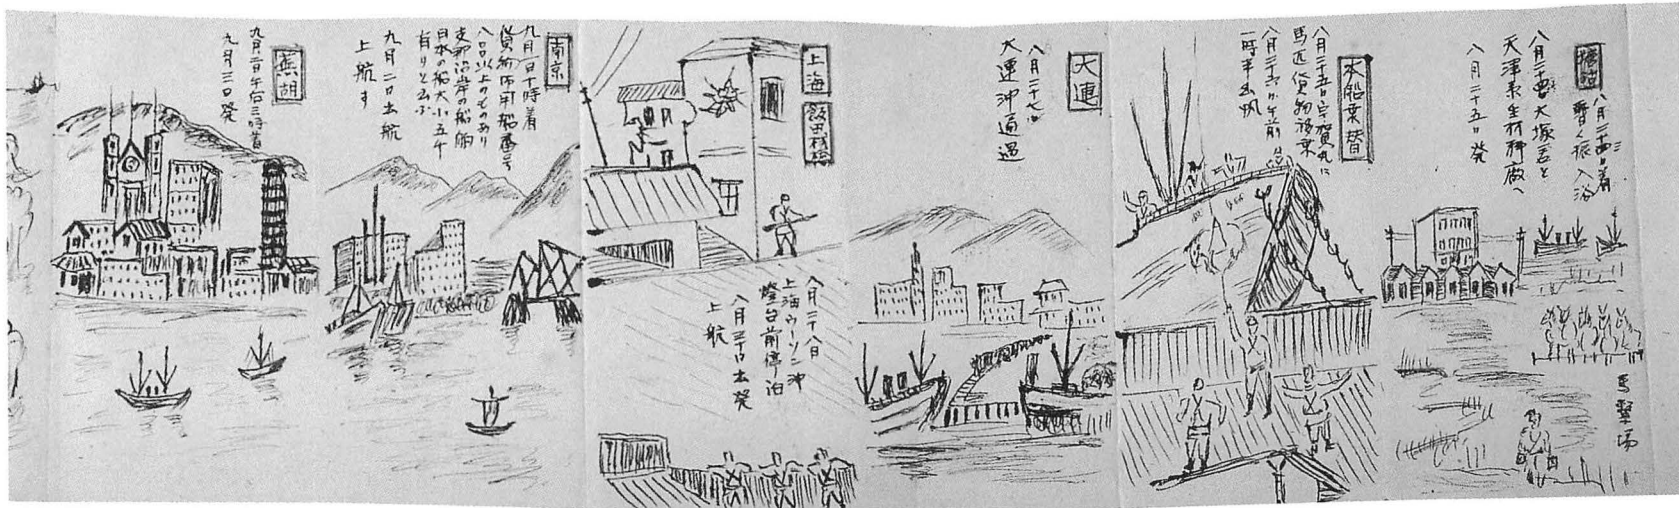 塘沽
八月二十四日着
暫く振入浴
八月二十四日大塚君と
天津衛生材料廠へ
八月二十五日発
馬繋場
本船乗替
八月二十五日宇賀丸に
馬匹貨物移乗
八月二十六日午前
一時半出帆
大連
八月二十七日
大連沖通過
上海
飯田桟橋
八月二十八日
上海ウースン沖
燈台前停泊
八月三十日出発
上航
南京
九月一日十時着
貨物
八〇〇以上のものあり
支那沿岸の船舶
日本の船大小五千
有りと云ふ
九月二日出航
上航す
蕪湖
九月二日午后三時着
九月三日発